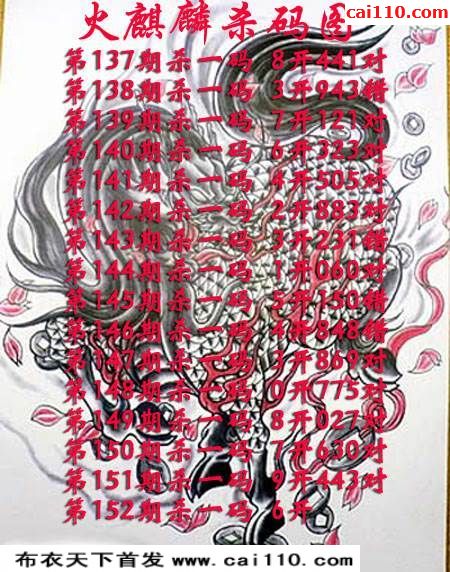 cai110.com
火麒麟杀码图
第137期杀一码 8开441对
第138期杀一码 3开943错
第139期杀一码 7开121对
第140期杀一码 6开323对
第141期杀一码 4开505对
第142期杀一码 2开883对
第143期杀一码 3开231错
第144期杀一码 1开060对
第145期杀一码 5开150错
第146期杀一码 4开848错
第147期杀一码 3开869对
第148期杀一码 0开775对
第149期杀一码 8开027对
第150期杀一码 7开630对
第151期杀一码 9开443对
第152期杀一码 6开
布衣天下首发 www.cai110.com